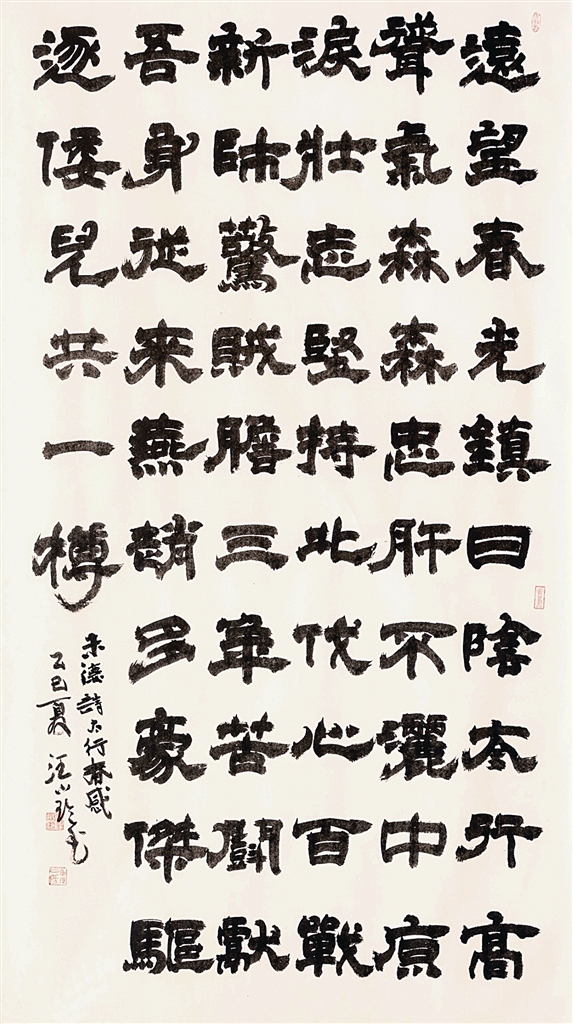 遠望春光鎮日陰太行高
聳氣森森忠肝不灑中原
淚壯志堅持北伐心百戰
新師驚賊膽三年苦鬪獻
吾身從來燕趙多豪傑驅
逐倭兒共一樽
朱德詩太行春感
乙巳夏汪小